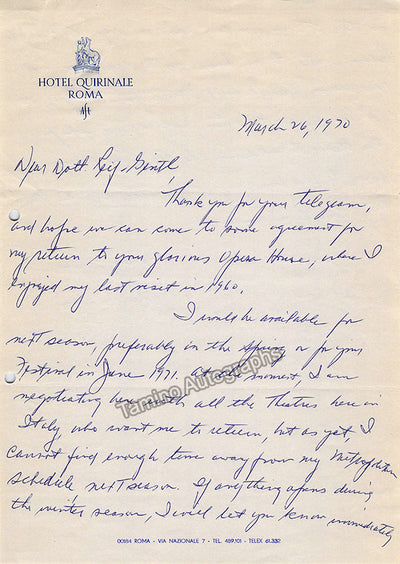 HOTEL QUIRINALE
ROMA
March 26, 1970
Dear Dott. Reif-Gintl,
Thank you for your telegram,
and hope we can come to some agreement for
my return to your glorious Opera House, where I
enjoyed my last visit in 1960.
I would be available for
next season, preferably in the Spring or for your
Festival in June 1971. At the moment, I am
negotiating here with all the Theatres here in
Italy, who want me to return, but as yet, I
cannot find enough time away from my Metropolitan
schedule, next season. If anything opens during
the winter season, I will let you know immediately
Tamino Autographs
00184 ROMA - VIA NAZIONALE 7 - TEL. 489.101 - TELEX 61.332